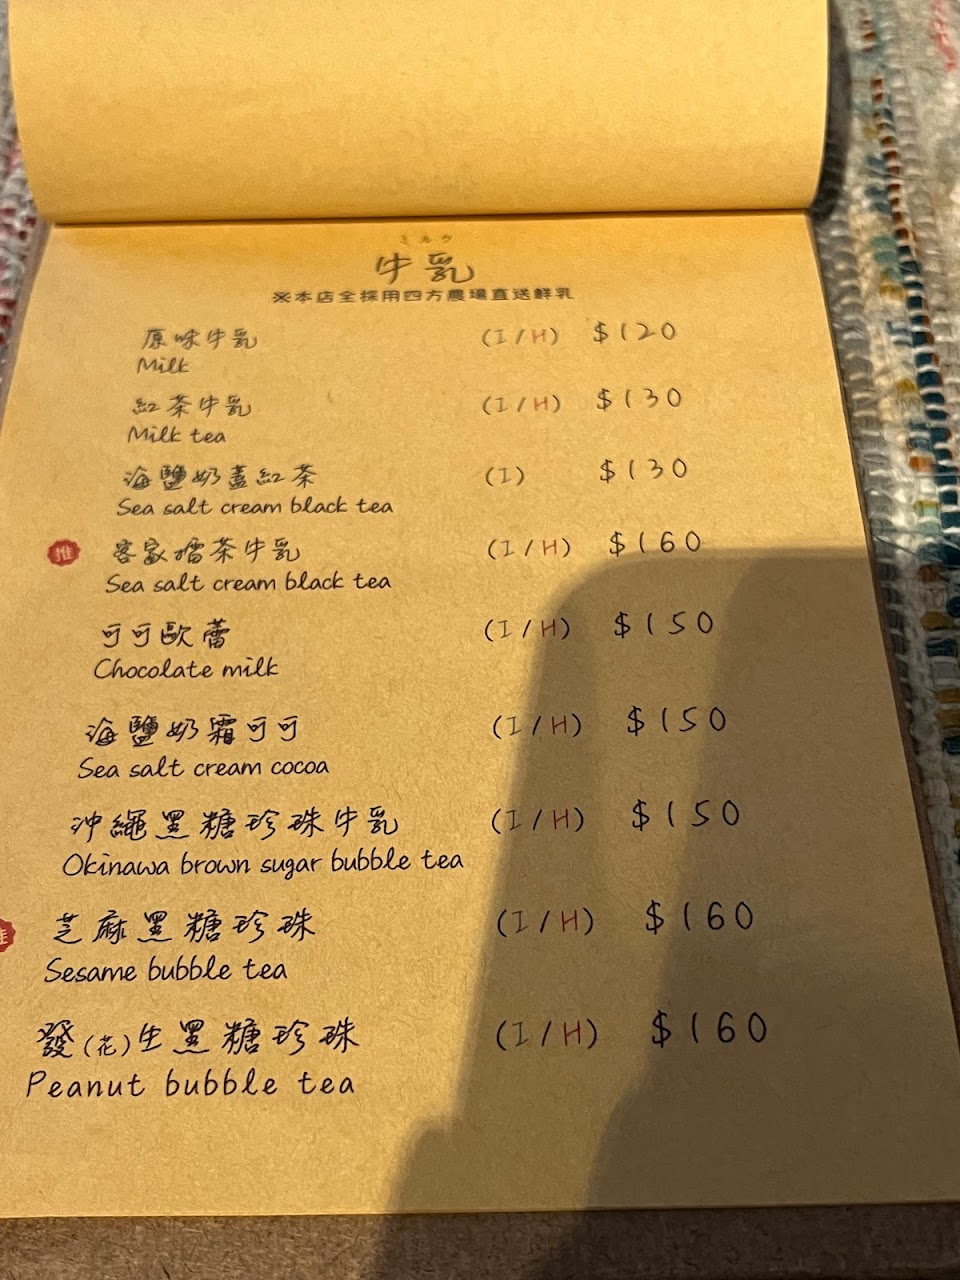 ミルク
牛乳
※本店全採用四方農場直送鮮乳
原味牛乳 (I/H) $120
Milk
紅茶牛乳 (I/H) $130
Milk tea
海鹽奶蓋紅茶 (I) $130
Sea salt cream black tea
推 客家擂茶牛乳 (I/H) $160
Sea salt cream black tea
可可歐蕾 (I/H) $150
Chocolate milk
海鹽奶霜可可 (I/H) $150
Sea salt cream cocoa
沖繩黑糖珍珠牛乳 (I/H) $150
Okinawa brown sugar bubble tea
推 芝麻黑糖珍珠 (I/H) $160
Sesame bubble tea
發(花)生黑糖珍珠 (I/H) $160
Peanut bubble tea